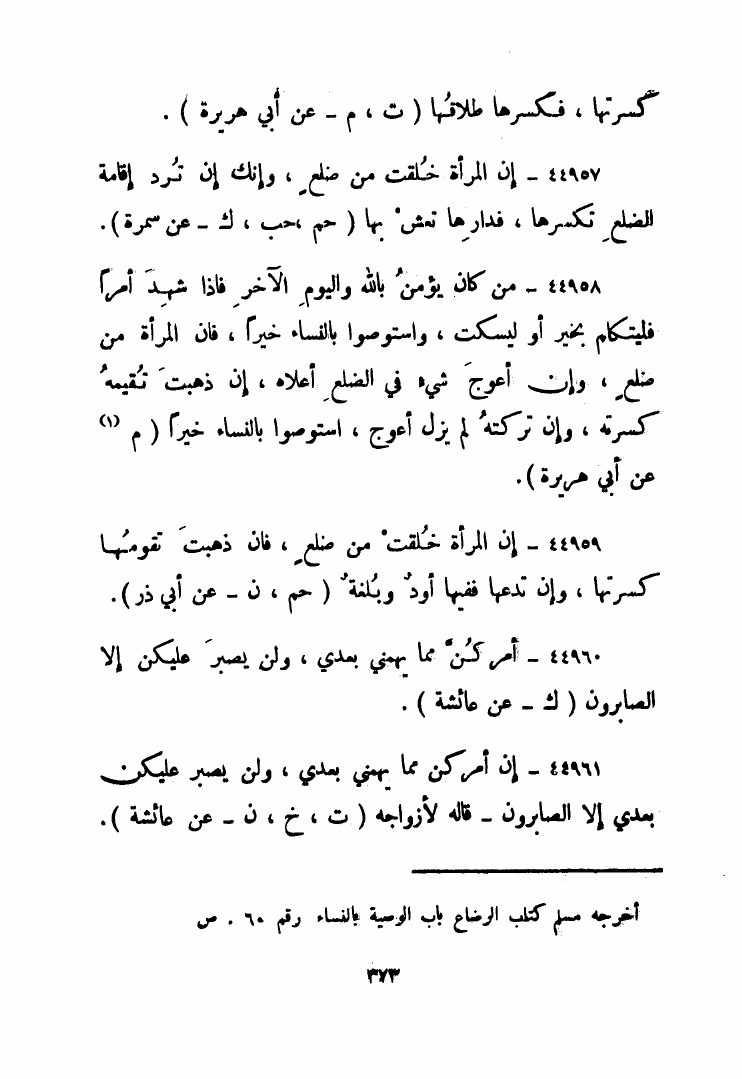 كسرتها ، فكسرها طلاقُها ( ت ، م - عن أبي هريرة ) .
٤٤٩٥٧ - إن المرأة خُلقت من ضلعٍ ، وإنك إن تُرد إقامة
الضلعِ تكسرها ، فدارِها تعشْ بها ( حم ،حب ، ك - عن سمرة ) .
٤٤٩٥٨ - من كان يؤمنُ بالله واليومِ الآخرِ فاذا شهِدَ أمراً
فليتكلم بخير أو ليسكت ، واستوصوا بالنساء خيراً ، فان المرأة من
ضلعٍ ، وإن أعوجَ شيء في الضلعِ أعلاه ، إن ذهبتَ تُقيمهُ
كسرته ، وإن تركتهُ لم يزل أعوج ، استوصوا بالنساء خيراً ( م (١)
عن أبي هريرة ) .
٤٤٩٥٩ - إن المرأة خُلقتْ من ضلعٍ ، فان ذهبتَ تقومُها
كسرتها ، وإن تدعها ففيها أودٌ وبُلغةٌ ( حم ، ن - عن أبي ذر ) .
٤٤٩٦٠ - أمركُنَّ مما يهمني بعدي ، ولن يصبرَ عليكن إلا
الصابرون ( ك - عن عائشة ) .
٤٤٩٦١ - إن أمركن مما يهمني بعدي ، ولن يصبر عليكن
بعدي إلا الصابرون - قاله لأزواجه ( ت ، خ ، ن - عن عائشة ) .
أخرجه مسلم كتاب الرضاع باب الوصية بالنساء رقم ٦٠ . ص
٣٧٣